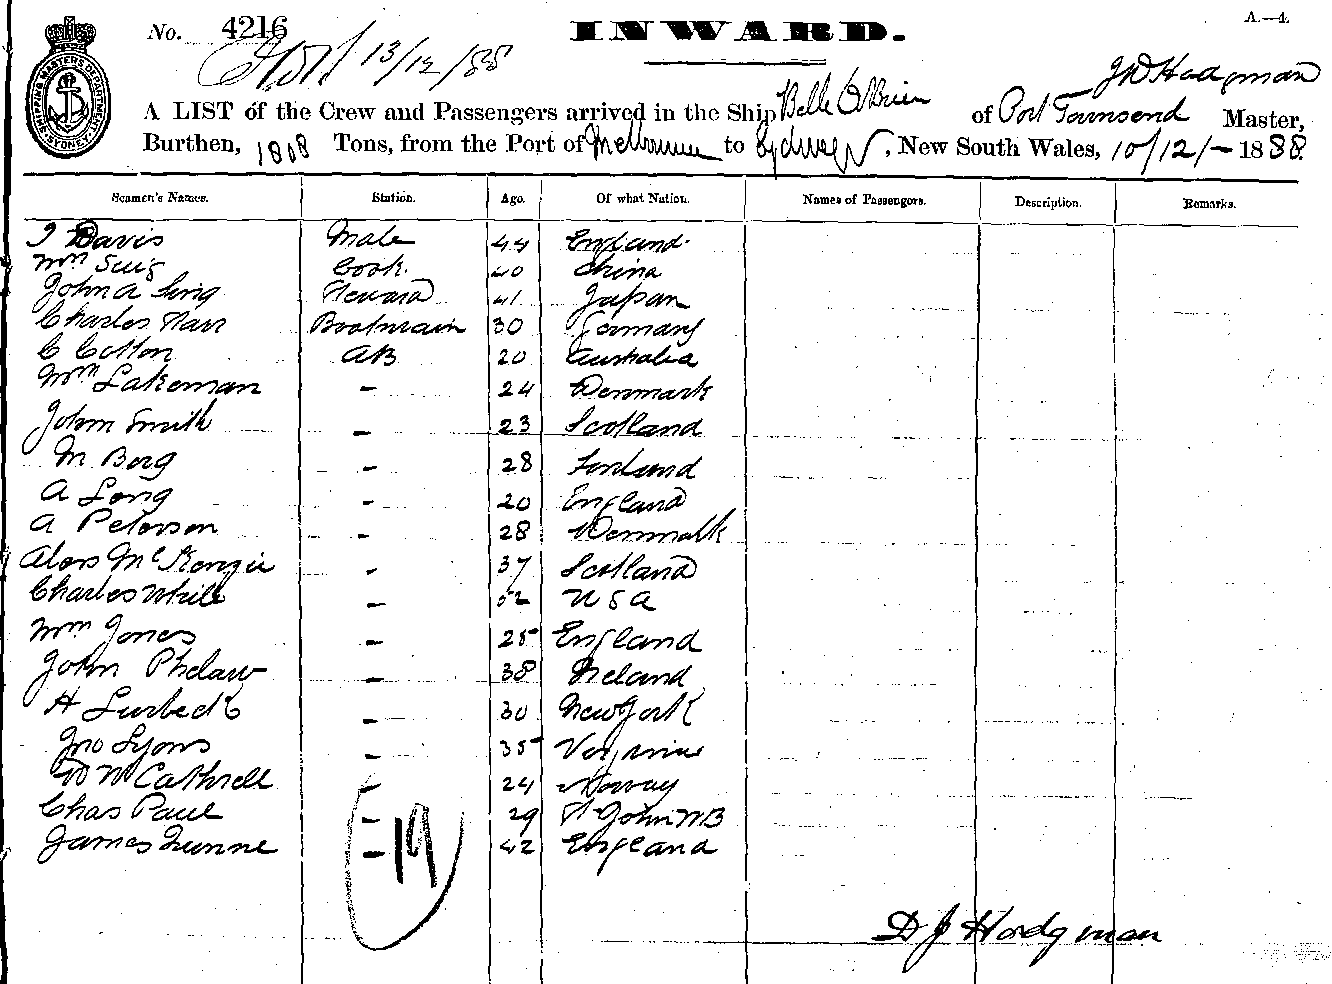 No. 4216
INWARD.
A.—4.
13/12/88
J D Hodgman
A LIST of the Crew and Passengers arrived in the Ship Belle O'Brien of Port Townsend Master,
Burthen, 1808 Tons, from the Port of Melbourne to Sydney, New South Wales, 10/12/- 1888.
SHIPPING MASTERS DEPARTMENT SYDNEY
Seamen's Names. Station. Age. Of what Nation. Names of Passengers. Description. Remarks.
J Davis Mate 44 England
Wm Sing Cook 40 China
John A Sing Steward 41 Japan
Charles Boatswain 30 Germany
C Cotton AB 20 Australia
Wm Lakeman - 24 Denmark
John Smith - 23 Scotland
M Berg - 28 Finland
A Long - 20 England
A Peterson - 28 Denmark
Alex McKenzie - 37 Scotland
Charles White - 52 U S A
Wm Jones - 25 England
John Phelan - 38 Ireland
H Lurbeck - 30 New York
Jno Lyons - 35 Virginia
- 24 Norway
Chas Paul - 29 St John NB
James Dunne - 42 England
19
D J Hodgman